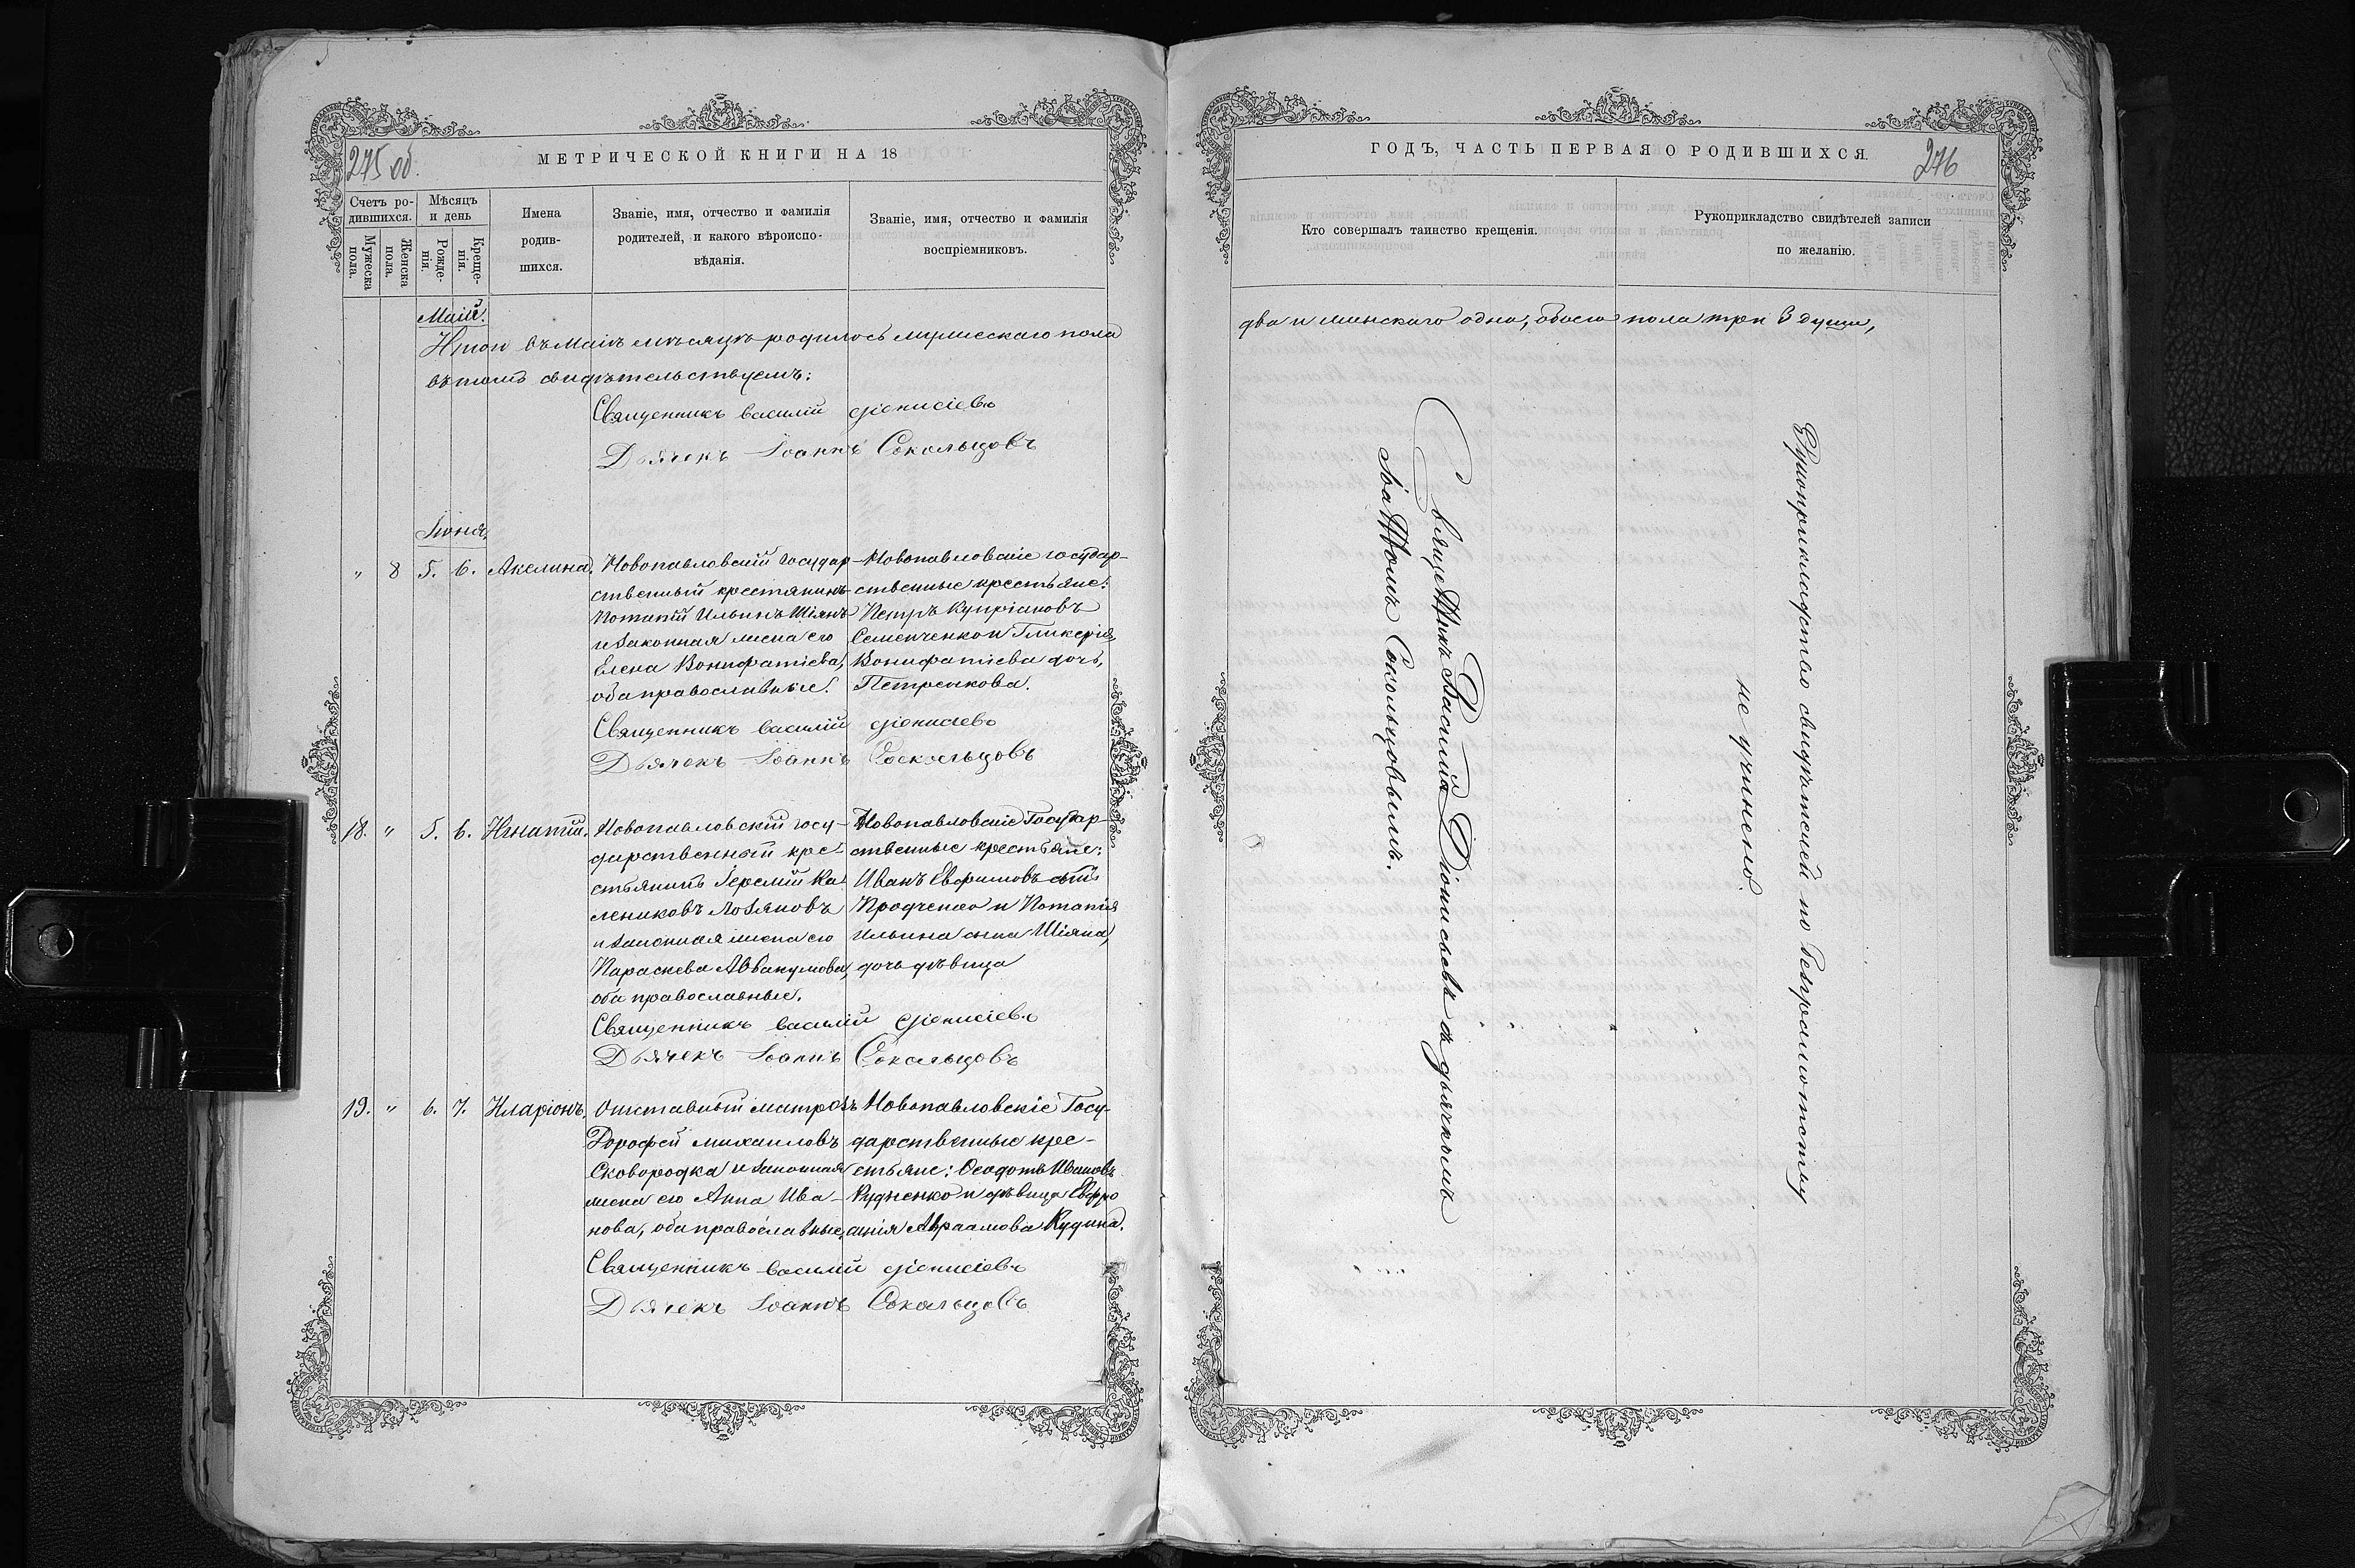 275 об.
МЕТРИЧЕСКОЙ КНИГИ НА 18
Счетъ ро-
дившихся.
Мужеска
пола.
Женска
пола.
Мѣсяцъ
и день
Рожде-
нія.
Креще-
нія.
Имена
родив-
шихся.
Званіе, имя, отчество и фамилія
родителей, и какого вѣроиспо-
вѣданія.
Званіе, имя, отчество и фамилія
воспріемниковъ.
Маій.
Итого въ Маіѣ мѣсяцѣ родилось мужескаго пола
въ томъ свидѣтельствуемъ:
Священникъ василій Діонисіевъ
Дьячекъ Іоаннъ Сокольцовъ
Іюня.
„ 8 5. 6. Акелина.
Новопавловскій государ-
ственный крестянинъ
Потапій Ильинъ Шіянъ
и законная жена его
Елена Вонифатіева,
оба православные.
Новопавловскіе государ-
ственные крестьяне:
Петръ Купріановъ
Семенченко и Гликерія
Вонифатіева дочь,
Петренкова.
Священникъ василій Діонисіевъ
Дьячекъ Іоаннъ Сокольцовъ
18. „ 5. 6. Игнатій.
Новопавловскій госу-
дарственный кре-
стьянинъ Іеремій Ка-
лениковъ Лозяновъ
и законная жена его
Параскева Аввакумова,
оба православные.
Новопавловскіе Государ-
ственные крестьяне:
Иванъ Евфимовъ сынъ
Продченко и Потапія
Ильина сына Шіяна,
дочь дѣвица
Священникъ василій Діонисіевъ
Дьячекъ Іоаннъ Сокольцовъ
19. „ 6. 7. Иларіонъ.
Отставный матрозъ
Дорофей михаиловъ
Сковородка и законная
жена его Анна Ива-
нова, оба православные,
Новопавловскіе Госу-
дарственные кре-
стьяне: Ѳеодотъ Ивановъ
Рудченко и дѣвица Евфро
синія Авраамова Кудина.
Священникъ василій Діонисіевъ
Дьячекъ Іоаннъ Сокольцовъ
ГОДЪ, ЧАСТЬ ПЕРВАЯ О РОДИВШИХСЯ.
276
Кто совершалъ таинство крещенія.
Рукоприкладство свидѣтелей записи
по желанію.
два и женскаго одна, обоего пола три 3 души,
Священникъ Василій Діонисьевъ съ дьячкомъ
Іоанномъ Сокольцовымъ.
Рукоприкладство свидѣтелей по безграмотству
не учинено